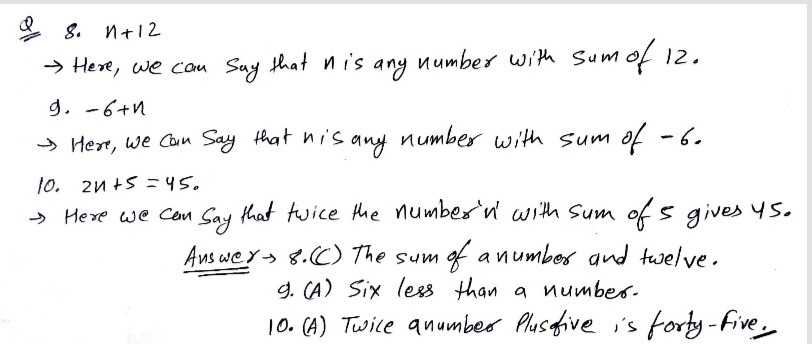 Q 8. n+12
→ Here, we can say that n is any number with sum of 12.
9. -6+n
→ Here, we can say that n is any number with sum of -6.
10. 2n+5 = 45.
→ Here we can say that twice the number 'n' with sum of 5 gives 45.
Answer → 8.(C) The sum of a number and twelve.
9. (A) Six less than a number.
10. (A) Twice a number Plus five is forty-five.